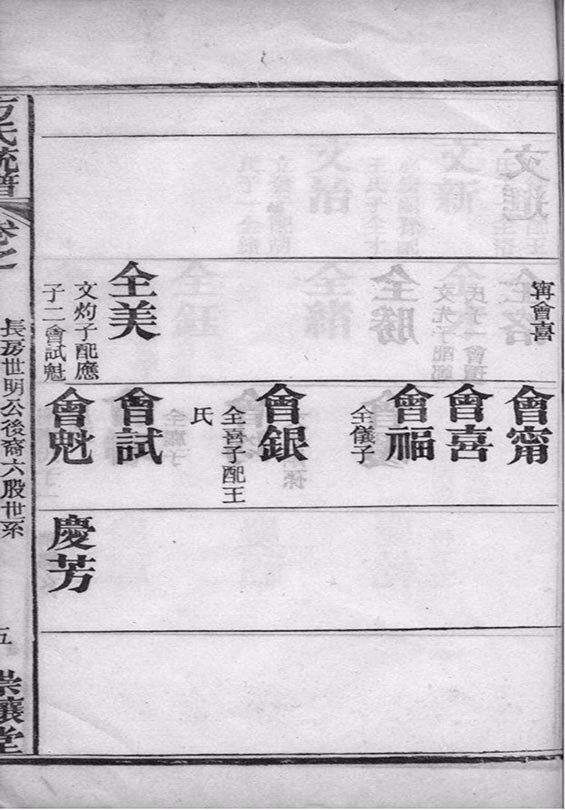 甯會喜
全美
文灼子配應
子二會試魁
會甯
會喜
會福
全儀子
會銀
全喜子配王
氏
會試
會魁
慶芳
方氏統譜
卷之一
長房世明公後裔六股世系
五
崇讓堂